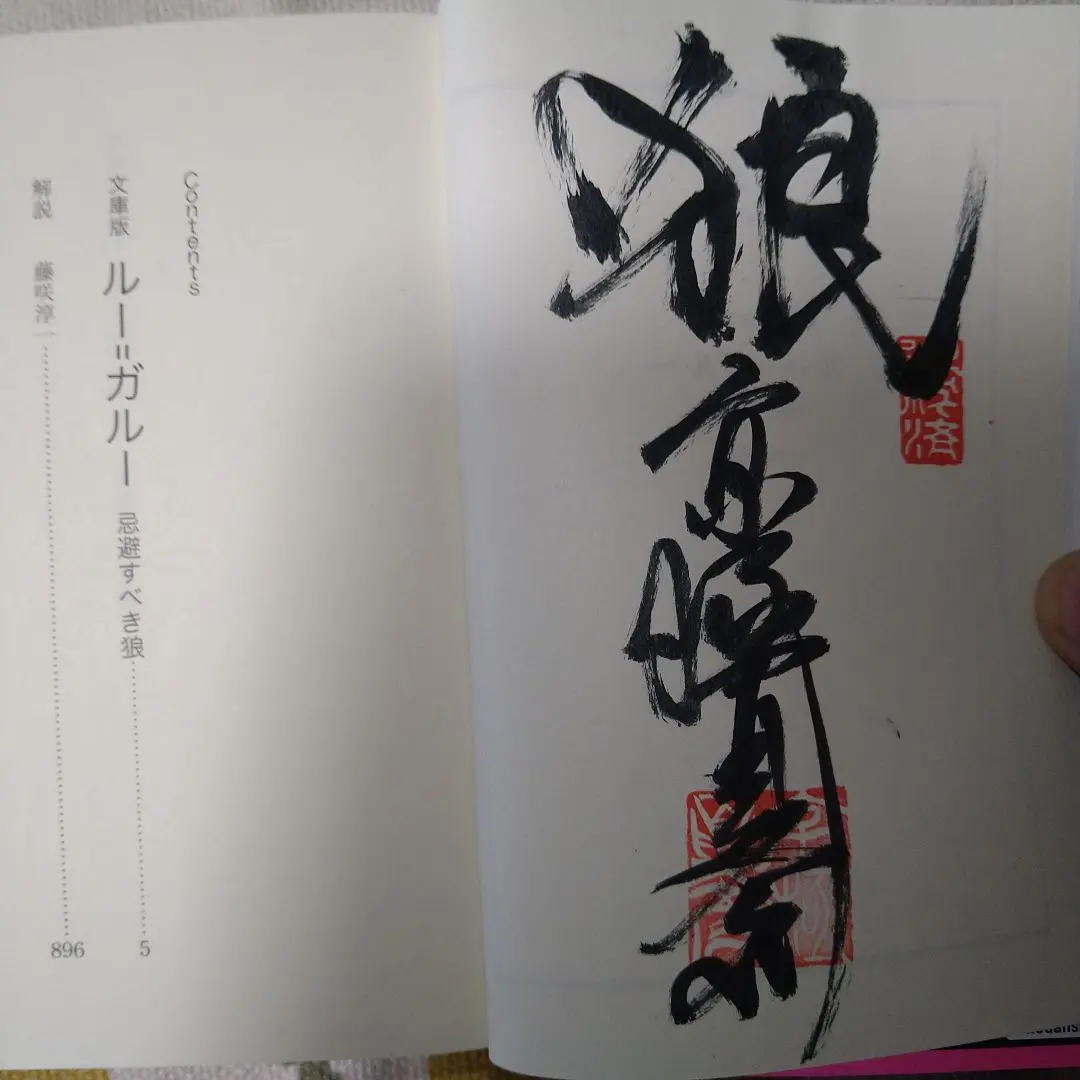 狼
京極夏彦
Contents
文庫版 ルー=ガルー 忌避すべき狼 5
解説 藤咲淳一 896